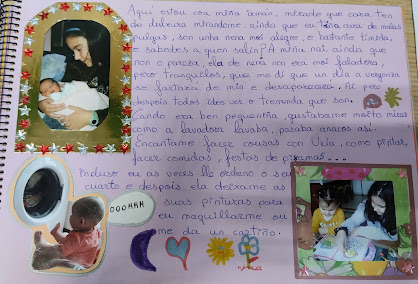 Aqui estou coa miña irmán, mirade que cara tien
de dulzura mirandome aínda que eu teña cara de malas
pulgas, son unha nena moi alegre, e bastante tímida,
e sabedes a quen salin? A miña nai aínda que
non o pareza, ela de nena non era moi faladora
pero tranquilos, que me di que un día a verguenza
se fartará de min e desaparecerá. Ai pero
despois todos ides ver o tremenda que son.
Cando era ben pequeniña, gustabame moito mirar
como a lavadora lavaba, pasaba anacos así.
Encantame facer cousas con Uxía, como pintar,
facer comidas, festas de pixamas...
Incluso eu as veces lle ordeno o seu
cuarto e despois ela deixame as
súas pinturas para
eu maquillarme ou
me da un cariño.
OOOHHH